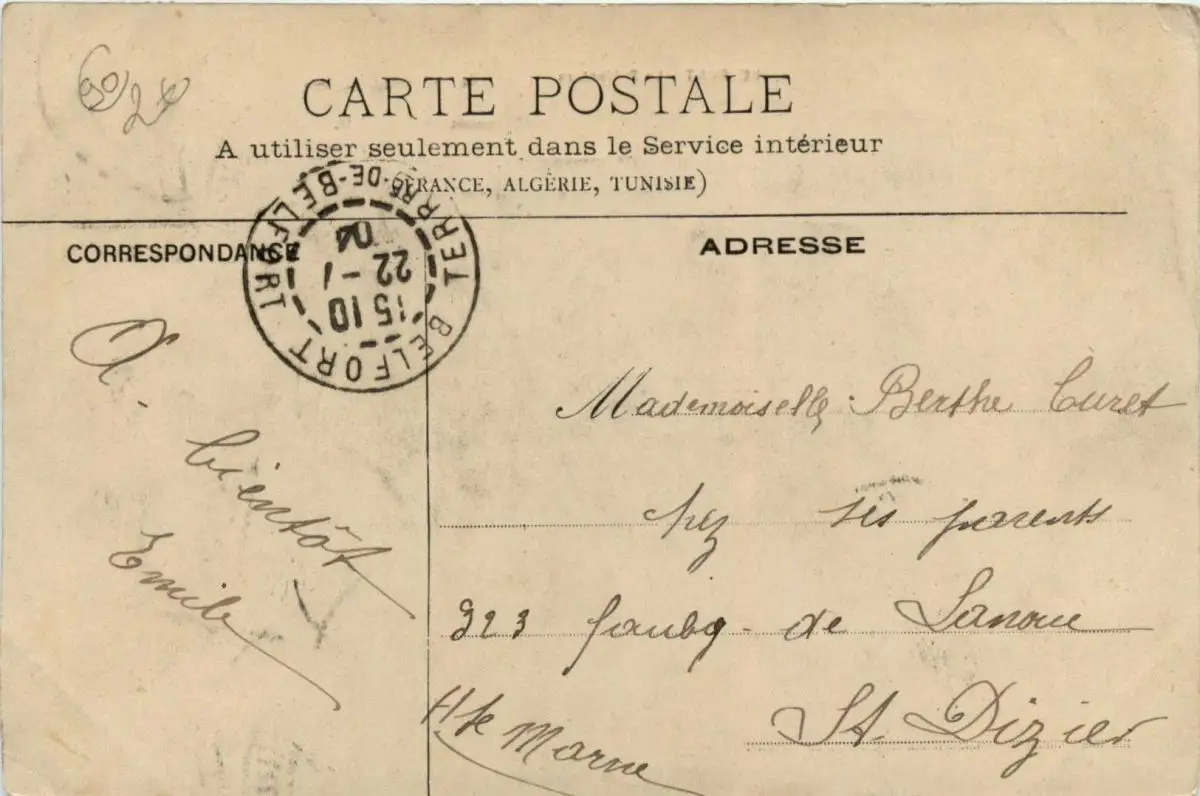 CARTE POSTALE
A utiliser seulement dans le Service intérieur
(FRANCE, ALGÉRIE, TUNISIE)
CORRESPONDANCE
ADRESSE
BELFORT TERRRE-DE-BELFORT
15 10
22 - 1
04
A
bientôt
Emile
Mademoiselle Berthe Curet
chez ses parents
323 faubg de Lanoue
St. Dizier
Hte Marne